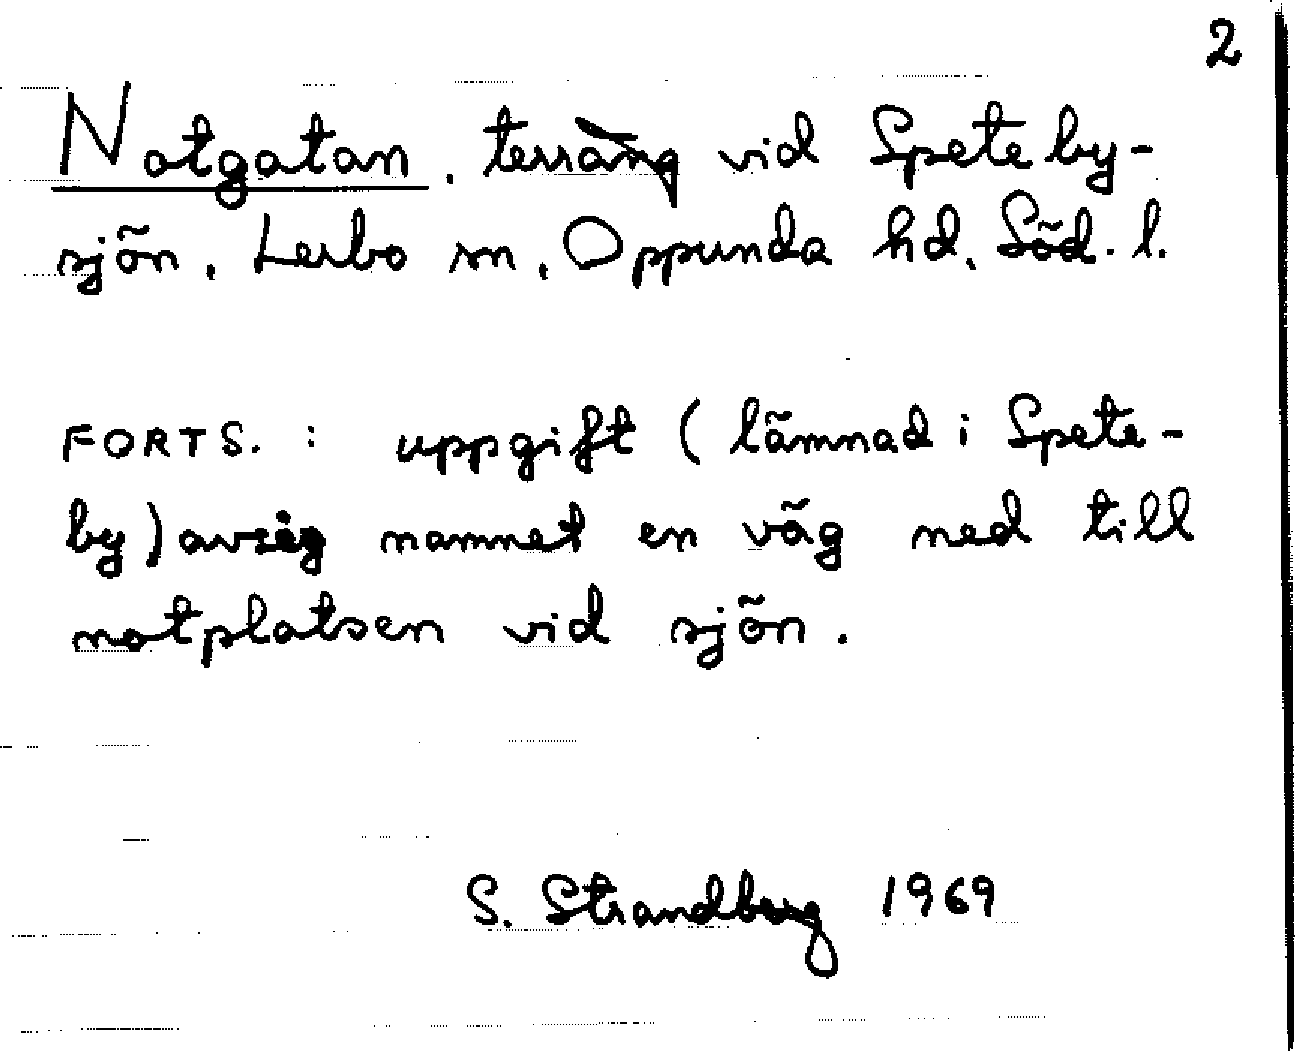 2
Notgatan, terräng vid Speteby-
sjön, Lerbo sn, Oppunda hd, Söd. l.
FORTS. : uppgift (lämnad i Spete-
by) avsåg namnet en väg ned till
notplatsen vid sjön.
S. Strandberg 1969